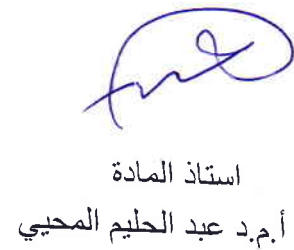 استاذ المادة
أ.م.د عبد الحليم المحيي